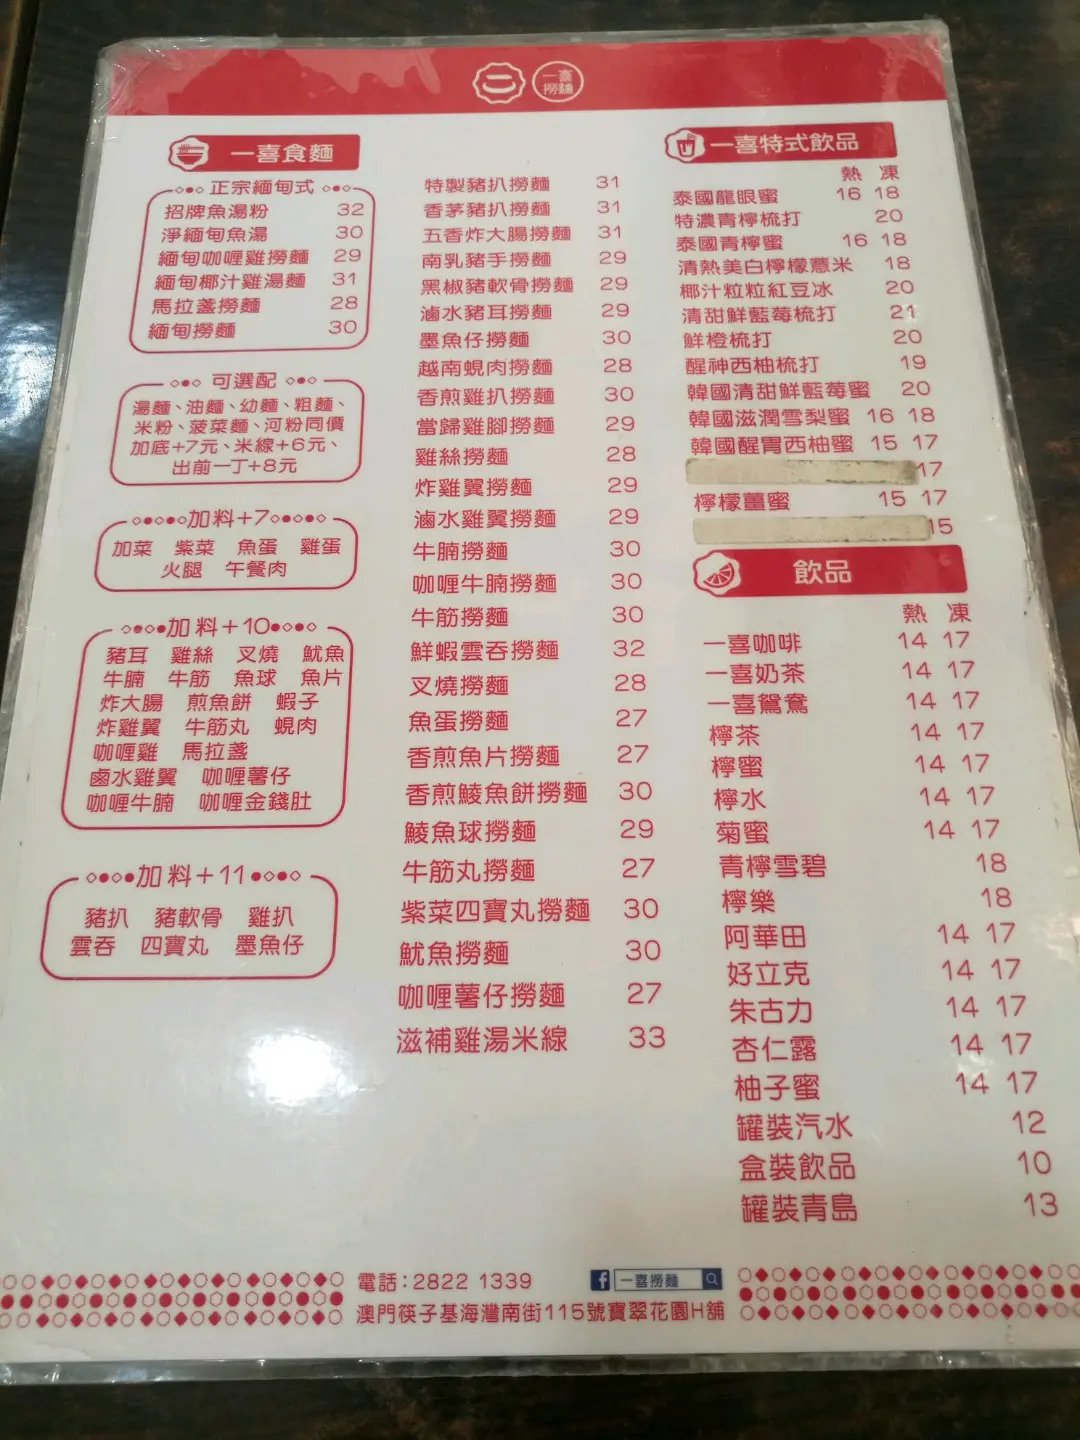 一喜
撈麵
一喜食麵
正宗緬甸式
招牌魚湯粉 32
淨緬甸魚湯 30
緬甸咖喱雞撈麵 29
緬甸椰汁雞湯麵 31
馬拉盞撈麵 28
緬甸撈麵 30
可選配
湯麵、油麵、幼麵、粗麵、
米粉、菠菜麵、河粉同價
加底+7元、米線+6元、
出前一丁+8元
加料+7
加菜 紫菜 魚蛋 雞蛋
火腿 午餐肉
加料+10
豬耳 雞絲 叉燒 魷魚
牛腩 牛筋 魚球 魚片
炸大腸 煎魚餅 蝦子
炸雞翼 牛筋丸 蜆肉
咖喱雞 馬拉盞
鹵水雞翼 咖喱薯仔
咖喱牛腩 咖喱金錢肚
加料+11
豬扒 豬軟骨 雞扒
雲吞 四寶丸 墨魚仔
特製豬扒撈麵 31
香茅豬扒撈麵 31
五香炸大腸撈麵 31
南乳豬手撈麵 29
黑椒豬軟骨撈麵 29
滷水豬耳撈麵 29
墨魚仔撈麵 30
越南蜆肉撈麵 28
香煎雞扒撈麵 30
當歸雞腳撈麵 29
雞絲撈麵 28
炸雞翼撈麵 29
滷水雞翼撈麵 29
牛腩撈麵 30
咖喱牛腩撈麵 30
牛筋撈麵 30
鮮蝦雲吞撈麵 32
叉燒撈麵 28
魚蛋撈麵 27
香煎魚片撈麵 27
香煎鯪魚餅撈麵 30
鯪魚球撈麵 29
牛筋丸撈麵 27
紫菜四寶丸撈麵 30
魷魚撈麵 30
咖喱薯仔撈麵 27
滋補雞湯米線 33
一喜特式飲品
熱 凍
泰國龍眼蜜 16 18
特濃青檸梳打 20
泰國青檸蜜 16 18
清熱美白檸檬薏米 18
椰汁粒粒紅豆冰 20
清甜鮮藍莓梳打 21
鮮橙梳打 20
醒神西柚梳打 19
韓國清甜鮮藍莓蜜 20
韓國滋潤雪梨蜜 16 18
韓國醒胃西柚蜜 15 17
17
檸檬薑蜜 15 17
15
飲品
熱 凍
一喜咖啡 14 17
一喜奶茶 14 17
一喜鴛鴦 14 17
檸茶 14 17
檸蜜 14 17
檸水 14 17
菊蜜 14 17
青檸雪碧 18
檸樂 18
阿華田 14 17
好立克 14 17
朱古力 14 17
杏仁露 14 17
柚子蜜 14 17
罐裝汽水 12
盒裝飲品 10
罐裝青島 13
電話:2822 1339
一喜撈麵
澳門筷子基海灣南街115號寶翠花園H舖